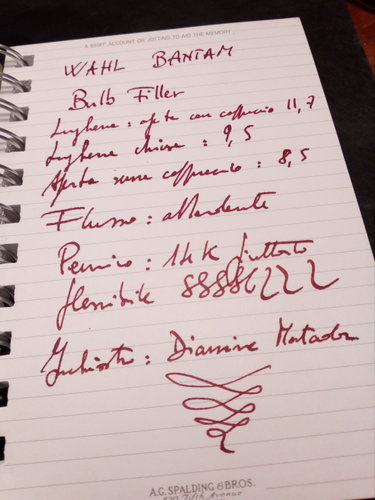 A BRIEF ACCOUNT OR JOTTING TO AID THE MEMORY
WAHL BANTAM
Bulb Filler
Lunghezza: aperta con cappuccio 11,7
Lunghezza chiusa: 9,5
Aperta senza cappuccio: 8,5
Flusso: abbondante
Pennino: 14K piuttosto
flessibile 88886222
Inchiostro: Diamine Matador
A.G. SPALDING & BROS.
520 Fifth Avenue